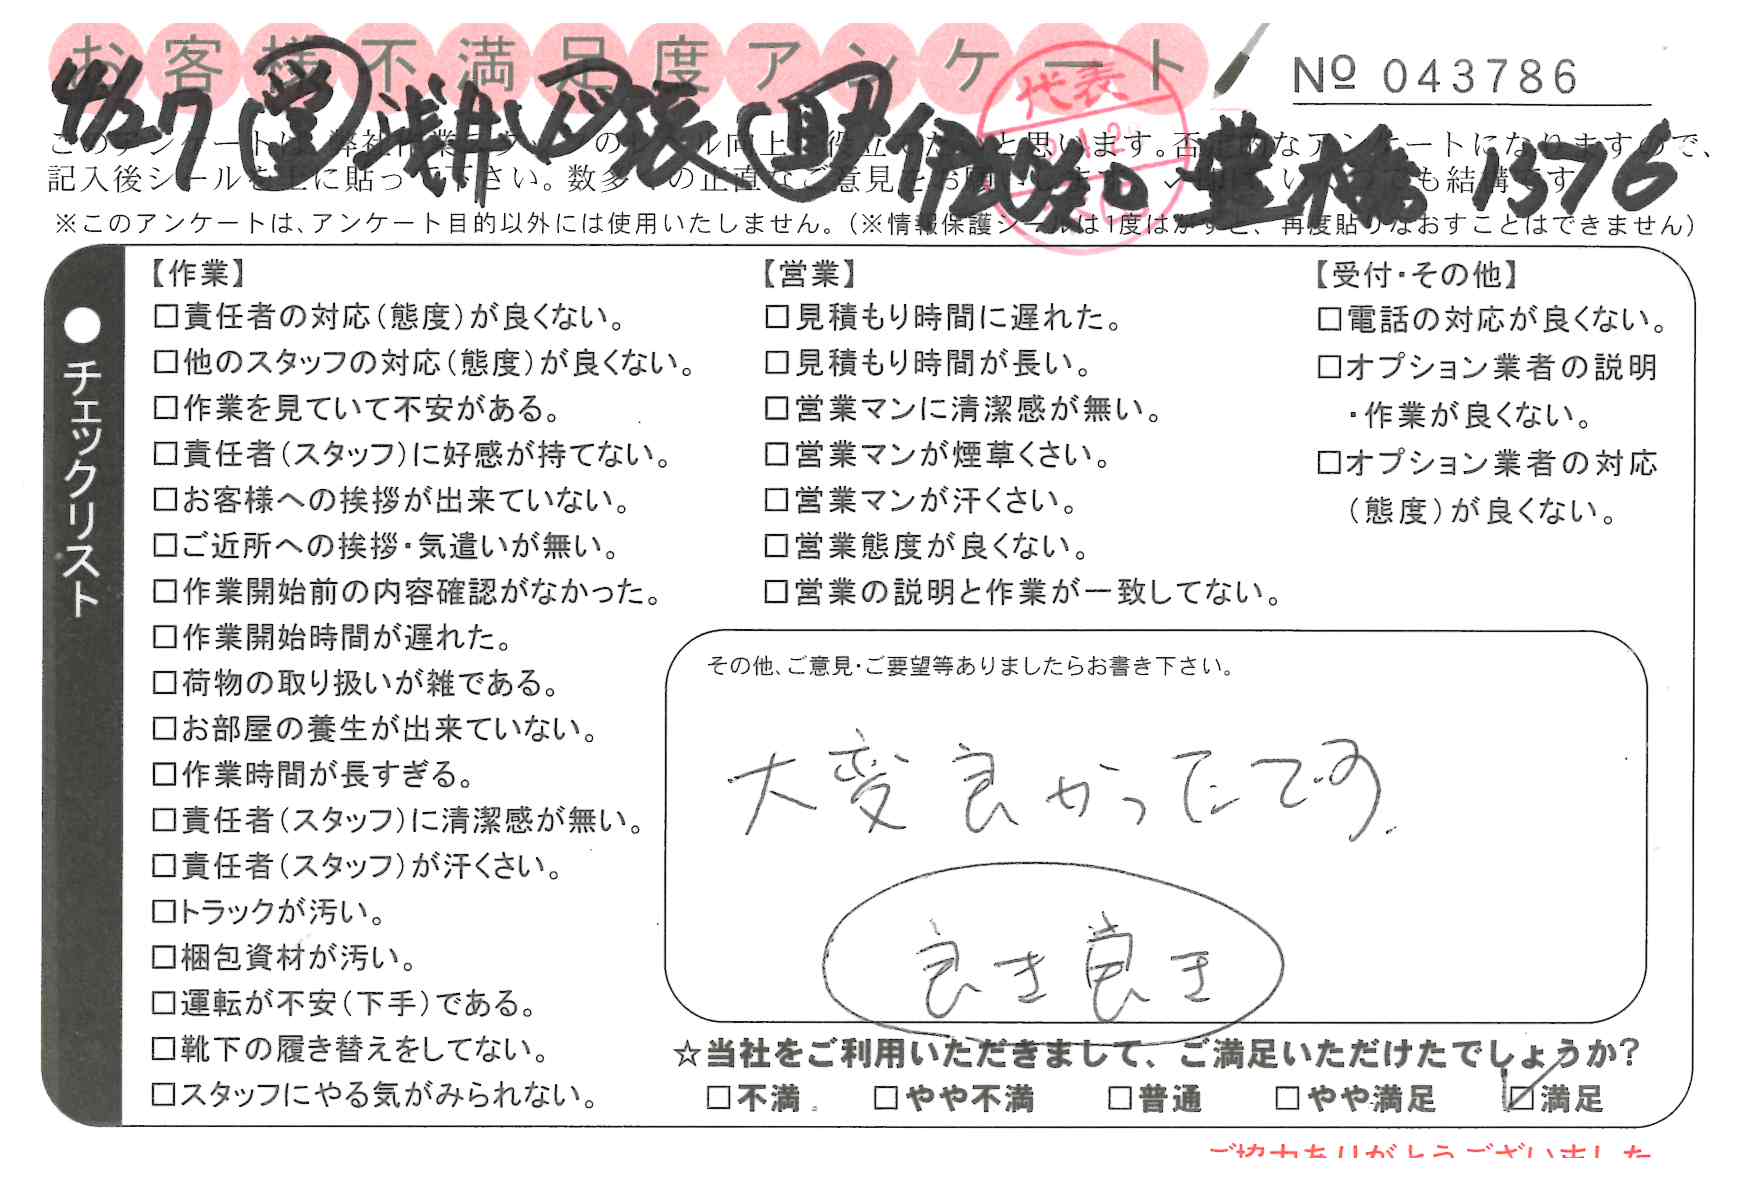 お客様不満足度アンケート
Nº 043786
4/27 営 浅井 引張 伊 豊橋 1376
代表
このアンケートは、弊社作業スタッフのレベル向上に役立てたいと思います。否定的なアンケートになりますので、
記入後シールを上に貼って下さい。数多くの正直なご意見をお願いします。
※このアンケートは、アンケート目的以外には使用いたしません。(※情報保護シールは1度はがすと、再度貼りなおすことはできません)
●チェックリスト
【作業】
□責任者の対応(態度)が良くない。
□他のスタッフの対応(態度)が良くない。
□作業を見ていて不安がある。
□責任者(スタッフ)に好感が持てない。
□お客様への挨拶が出来ていない。
□ご近所への挨拶・気遣いが無い。
□作業開始前の内容確認がなかった。
□作業開始時間が遅れた。
□荷物の取り扱いが雑である。
□お部屋の養生が出来ていない。
□作業時間が長すぎる。
□責任者(スタッフ)に清潔感が無い。
□責任者(スタッフ)が汗くさい。
□トラックが汚い。
□梱包資材が汚い。
□運転が不安(下手)である。
□靴下の履き替えをしてない。
□スタッフにやる気がみられない。
【営業】
□見積もり時間に遅れた。
□見積もり時間が長い。
□営業マンに清潔感が無い。
□営業マンが煙草くさい。
□営業マンが汗くさい。
□営業態度が良くない。
□営業の説明と作業が一致してない。
【受付・その他】
□電話の対応が良くない。
□オプション業者の説明
・作業が良くない。
□オプション業者の対応
(態度)が良くない。
その他、ご意見・ご要望等ありましたらお書き下さい。
大変良かったです.
良き良き
☆当社をご利用いただきまして、ご満足いただけたでしょうか?
□不満 □やや不満 □普通 □やや満足 ☑満足
ご協力ありがとうございました